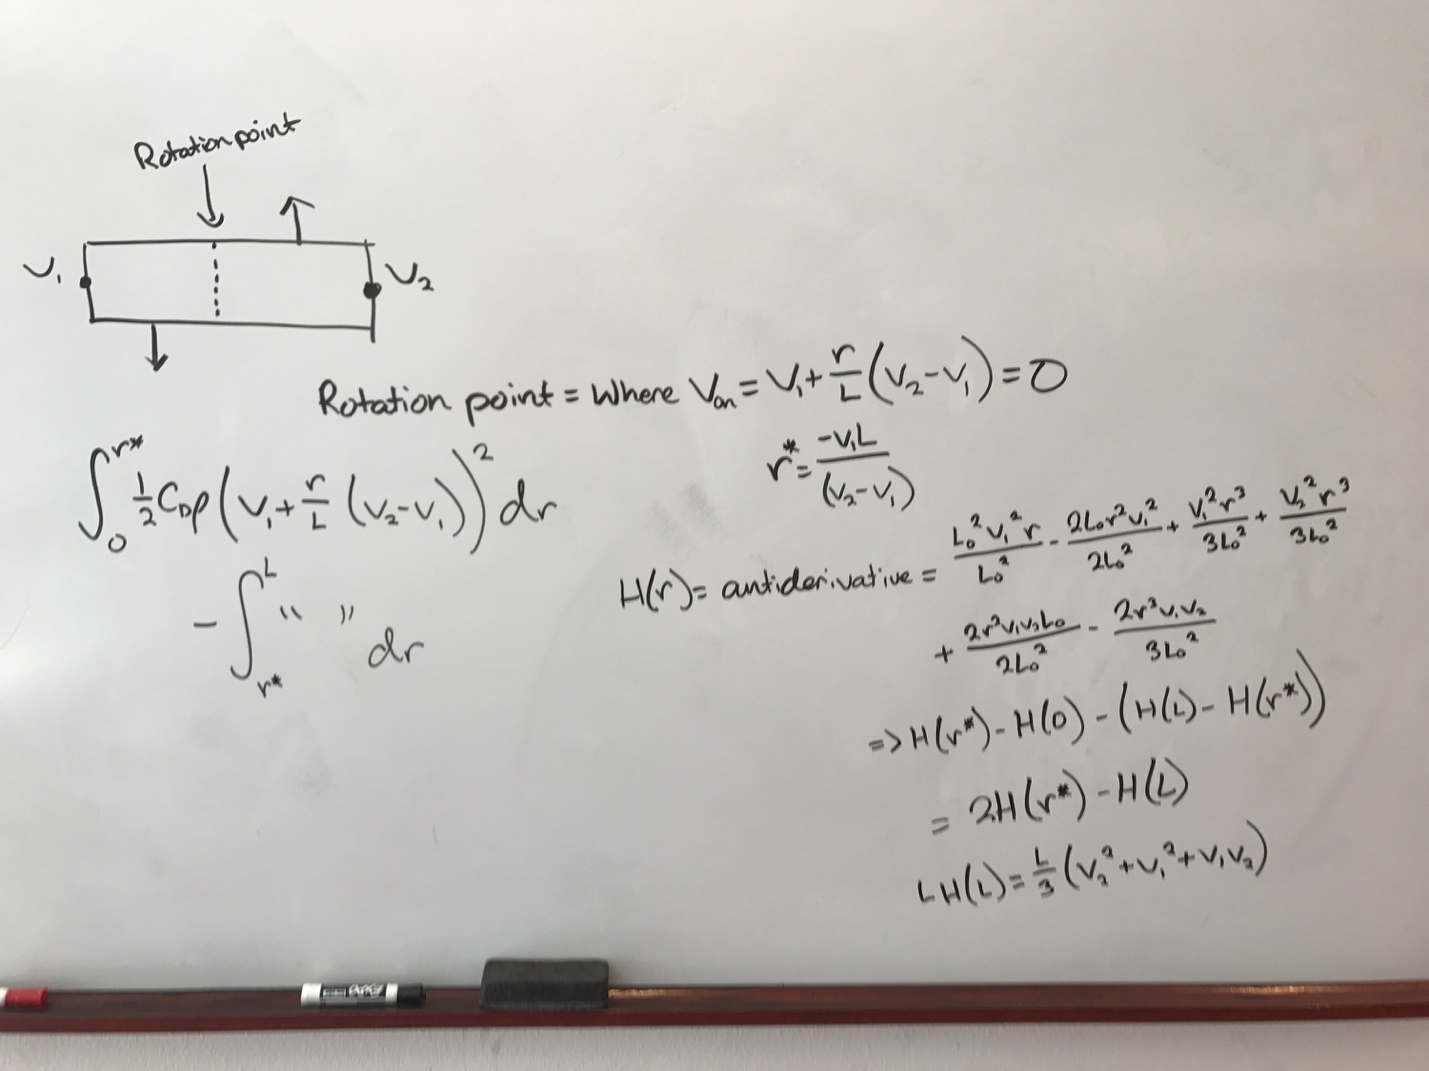 Rotation point
V₁
V₂
Rotation point = Where Vₒₙ = V₁ + r/L (V₂ - V₁) = 0
r* = -V₁L / (V₂ - V₁)
∫₀^r* ½ C_D ρ (V₁ + r/L (V₂ - V₁))² dr
- ∫_r*^L " " dr
H(r) = antiderivative = L₀²V₁²r / L₀² - 2L₀r²V₁² / 2L₀² + V₁²r³ / 3L₀² + V₂²r³ / 3L₀²
+ 2r²V₁V₂L₀ / 2L₀² - 2r³V₁V₂ / 3L₀²
=> H(r*) - H(0) - (H(L) - H(r*))
= 2H(r*) - H(L)
L H(L) = L/3 (V₂² + V₁² + V₁V₂)
EXPO